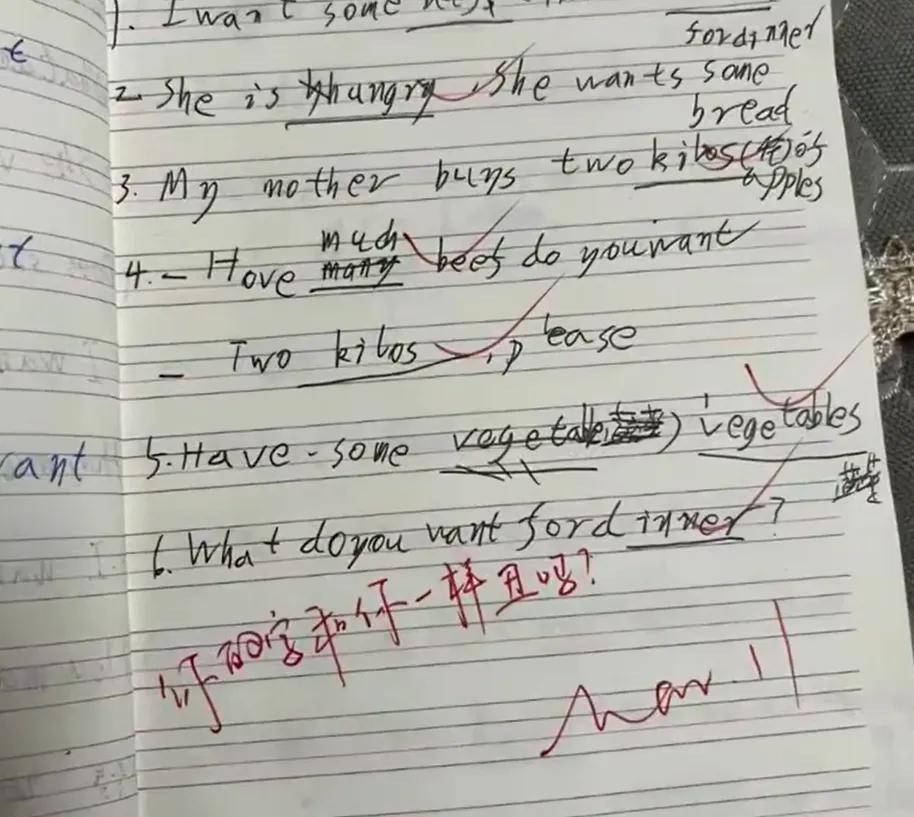 1. I want some
for dinner
2 She is hungry. She wants some
bread
3. My mother buys two kilos(千克)of
apples
4. - Hove much beef do you want
many
- Two kilos, please
5. Have some vegetable vegetables
6. What do you want for dinner?
你的字和你一样丑吗?
Mar. 11
cant